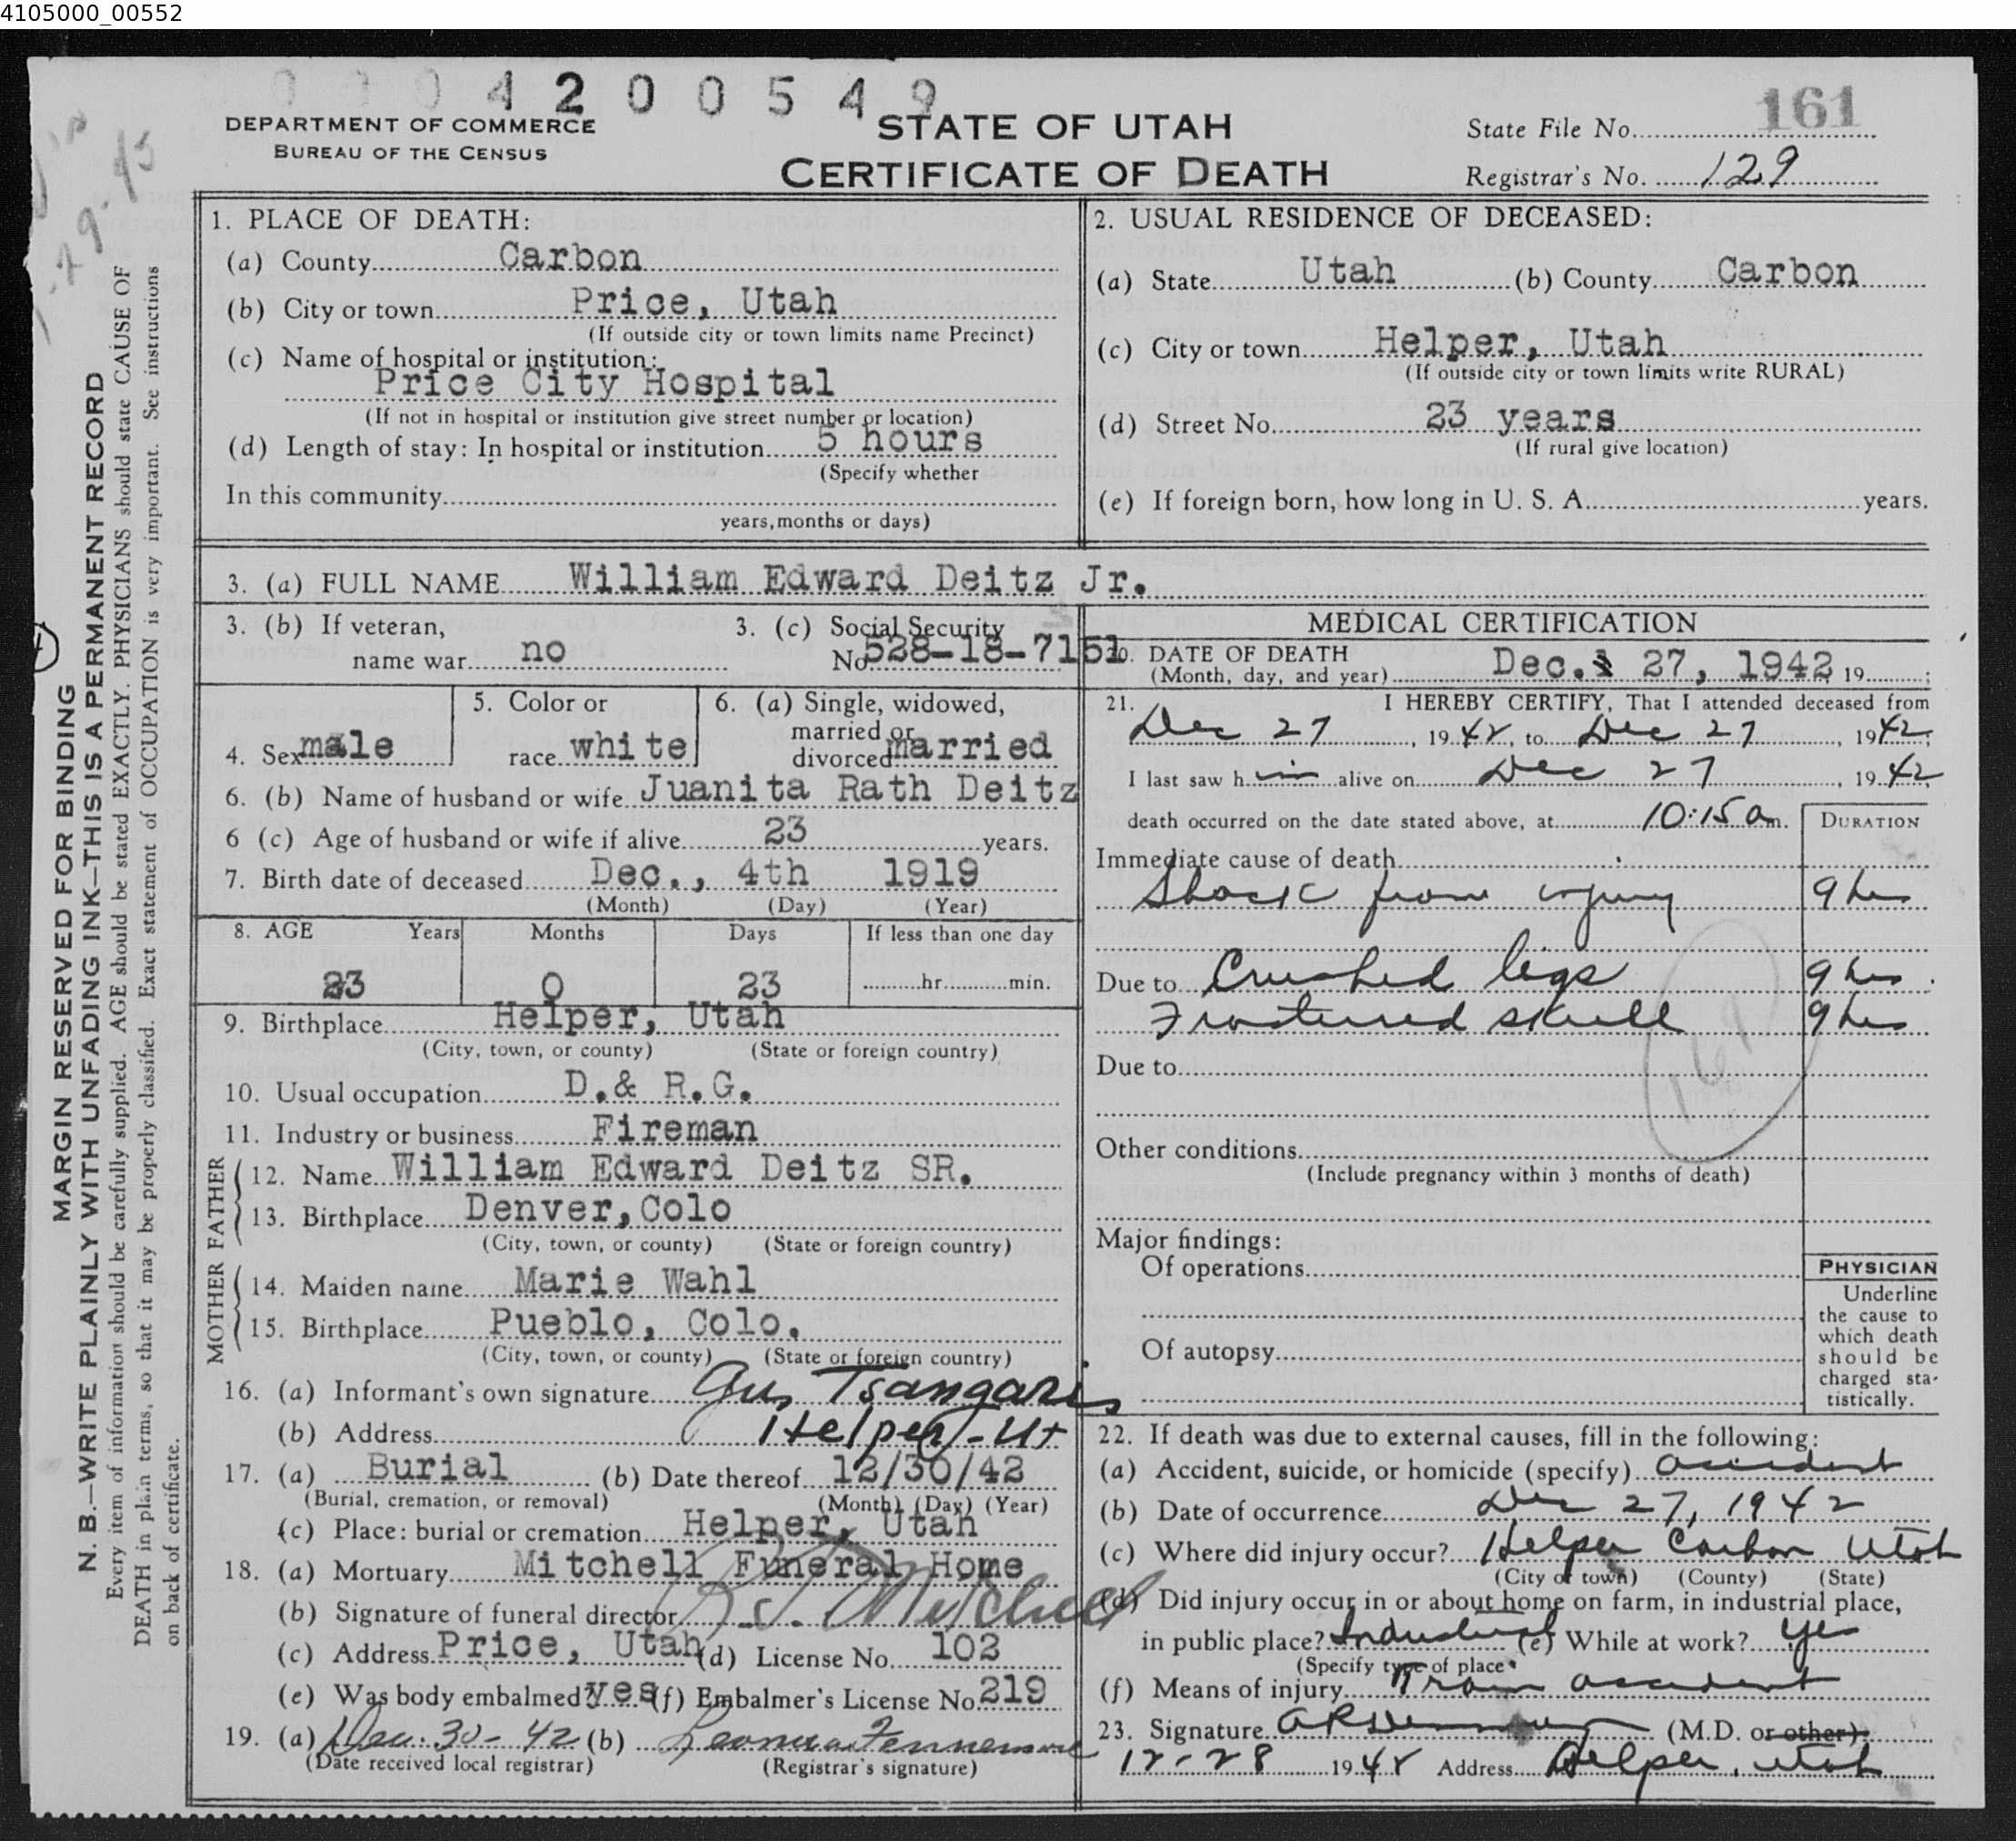 4105000_00552
0 0 0 4 2 0 0 5 4 9
DEPARTMENT OF COMMERCE
BUREAU OF THE CENSUS
STATE OF UTAH
CERTIFICATE OF DEATH
State File No. 161
Registrar's No. 129
MARGIN RESERVED FOR BINDING
N. B.—WRITE PLAINLY WITH UNFADING INK—THIS IS A PERMANENT RECORD
Every item of information should be carefully supplied. AGE should be stated EXACTLY. PHYSICIANS should state CAUSE OF
DEATH in plain terms, so that it may be properly classified. Exact statement of OCCUPATION is very important. See instructions
on back of certificate.
1. PLACE OF DEATH:
(a) County Carbon
(b) City or town Price, Utah
(If outside city or town limits name Precinct)
(c) Name of hospital or institution:
Price City Hospital
(If not in hospital or institution give street number or location)
(d) Length of stay: In hospital or institution 5 hours
(Specify whether
In this community
years, months or days)
2. USUAL RESIDENCE OF DECEASED:
(a) State Utah (b) County Carbon
(c) City or town Helper, Utah
(If outside city or town limits write RURAL)
(d) Street No. 23 years
(If rural give location)
(e) If foreign born, how long in U. S. A. years.
3. (a) FULL NAME William Edward Deitz Jr.
3. (b) If veteran,
name war no
3. (c) Social Security
No 528-18-7151
4. Sex male
5. Color or
race white
6. (a) Single, widowed,
married or
divorced married
6. (b) Name of husband or wife Juanita Rath Deitz
6 (c) Age of husband or wife if alive 23 years.
7. Birth date of deceased Dec., 4th 1919
(Month) (Day) (Year)
8. AGE Years Months Days If less than one day
23 0 23 hr. min.
9. Birthplace Helper, Utah
(City, town, or county) (State or foreign country)
10. Usual occupation D.& R.G.
11. Industry or business Fireman
FATHER
12. Name William Edward Deitz SR.
13. Birthplace Denver, Colo
(City, town, or county) (State or foreign country)
MOTHER
14. Maiden name Marie Wahl
15. Birthplace Pueblo, Colo.
(City, town, or county) (State or foreign country)
16. (a) Informant's own signature Gus Tsangaris
(b) Address Helper - Ut
17. (a) Burial (b) Date thereof 12/30/42
(Burial, cremation, or removal) (Month) (Day) (Year)
(c) Place: burial or cremation Helper, Utah
18. (a) Mortuary Mitchell Funeral Home
(b) Signature of funeral director Mitchell
(c) Address Price, Utah (d) License No. 102
(e) Was body embalmed? yes (f) Embalmer's License No. 219
19. (a) Dec. 30 - 42 (b) Leonora Fennemore
(Date received local registrar) (Registrar's signature)
MEDICAL CERTIFICATION
20. DATE OF DEATH
(Month, day, and year) Dec. 27, 1942 19
21. I HEREBY CERTIFY, That I attended deceased from
Dec 27, 1942, to Dec 27, 1942;
I last saw him alive on Dec 27, 1942
death occurred on the date stated above, at 10:15 a m.
DURATION
Immediate cause of death
Shock from injury 9 hrs
Due to Crushed legs 9 hrs
Fractured skull 9 hrs
Due to
Other conditions
(Include pregnancy within 3 months of death)
Major findings:
Of operations
Of autopsy
PHYSICIAN
Underline
the cause to
which death
should be
charged sta-
tistically.
22. If death was due to external causes, fill in the following:
(a) Accident, suicide, or homicide (specify) accident
(b) Date of occurrence Dec 27, 1942
(c) Where did injury occur? Helper Carbon Utah
(City or town) (County) (State)
(d) Did injury occur in or about home on farm, in industrial place,
in public place? Industrial (e) While at work? Yes
(Specify type of place
(f) Means of injury Train accident
23. Signature (M.D. or other)
12-28 1942 Address Helper, Utah